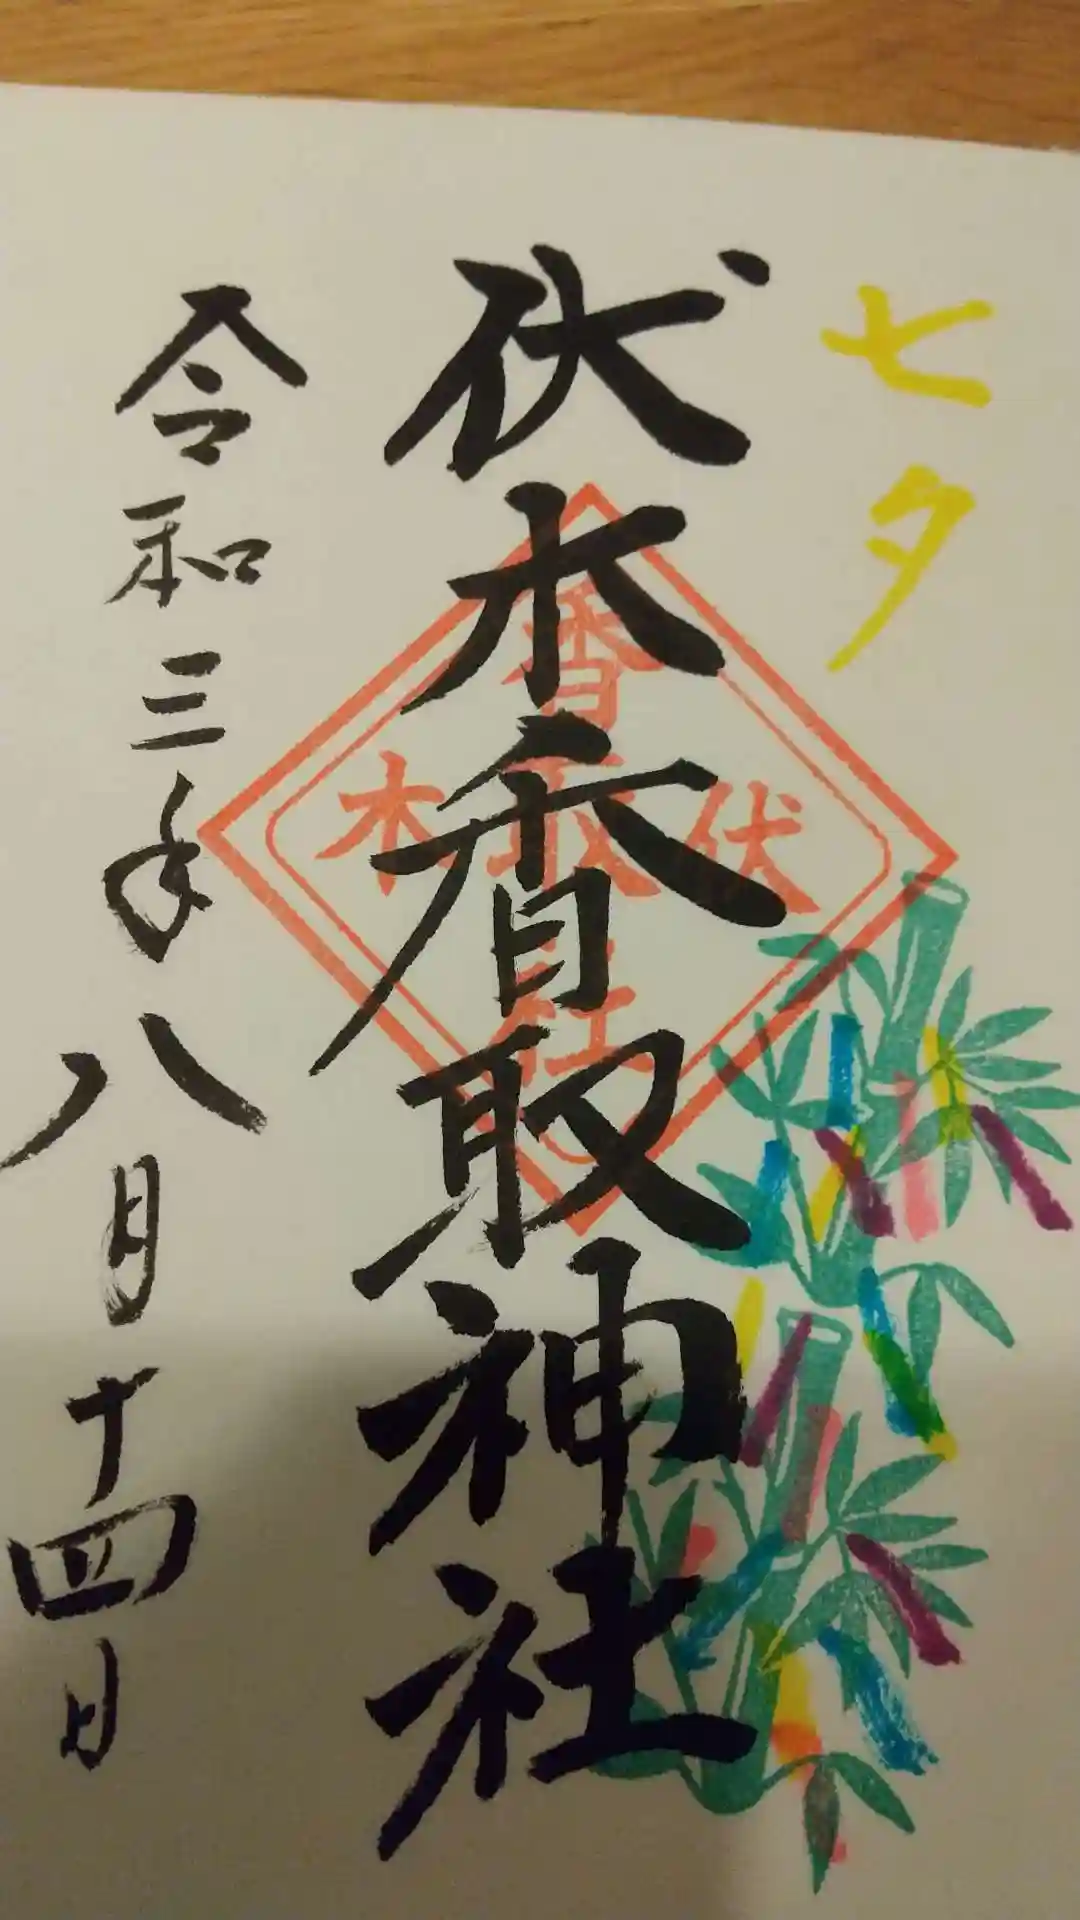 七夕
伏木香取神社
香取
伏木
社
令和三年八月十四日